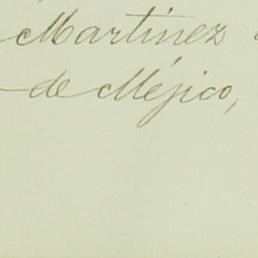 Martinez
de Méjico,